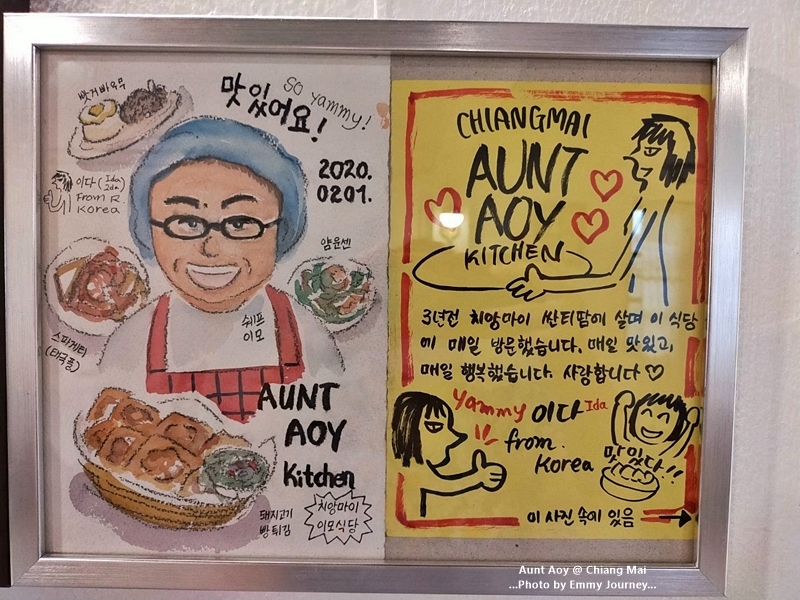 팟 거바우무
맛있어요!
SO yammy!
2020.
0201.
이다 (Ida
2da)
From R.
Korea
얌운센
스파게티
(태국풀)
쉐프
이모
AUNT
AOY
Kitchen
돼지고기
빵튀김
치앙마이
이모식당
CHIANGMAI
AUNT
AOY
KITCHEN
3년전 치앙마이 싼티땀에 살며 이 식당
에 매일 방문했습니다. 매일 맛있고,
매일 행복했습니다. 사랑합니다 ♡
Yammy 이다 Ida
from.
Korea
맛있다!!
이 사진 속에 있음
Aunt Aoy @ Chiang Mai
...Photo by Emmy Journey...